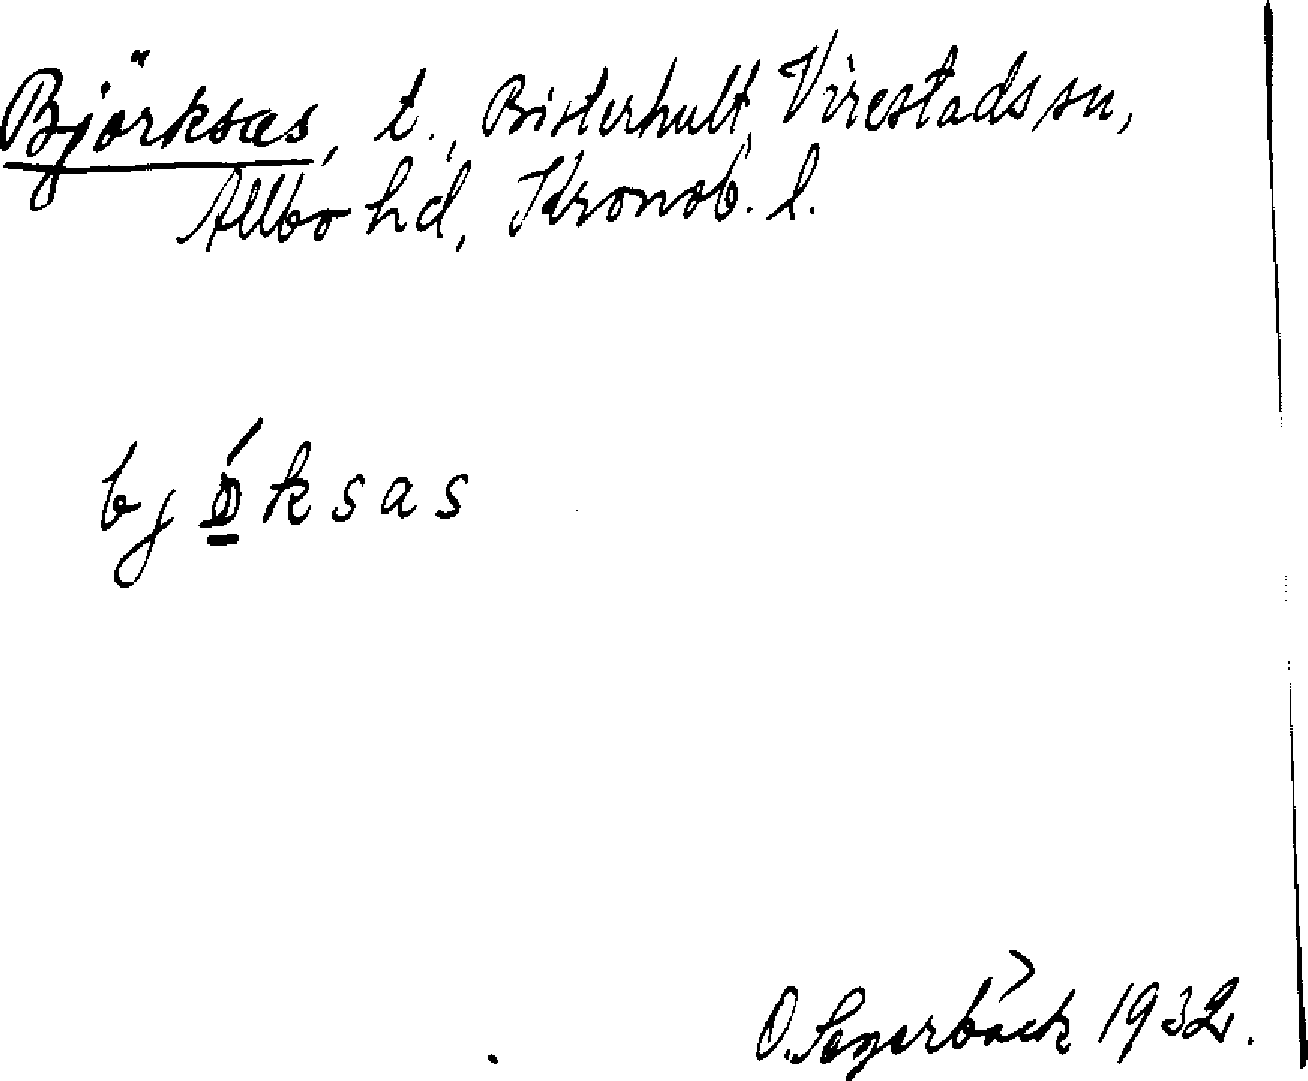 Björksas, t., Bisterhult, Virestads sn,
Allbo hd, Kronob. l.
bjöksas
O. Segerbäck 1932.